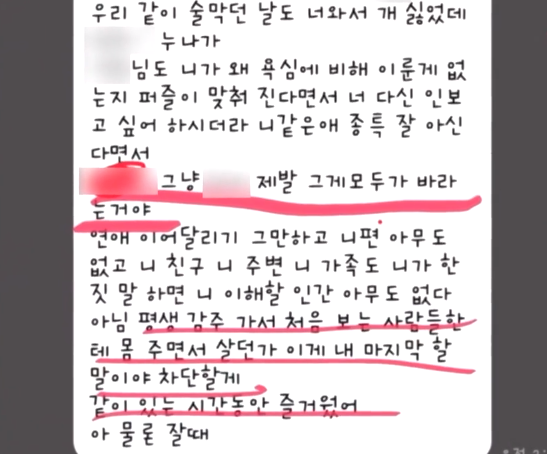 우리 같이 술막던 날도 너와서 개 싫었데
누나가
님도 니가 왜 욕심에 비해 이룬게 없
는지 퍼즐이 맞춰 진다면서 너 다신 인보
고 싶어 하시더라 니같은애 종특 잘 아신
다면서
그냥 제발 그게모두가 바라
는거야
연애 이어달리기 그만하고 니편 아무도
없고 니 친구 니 주변 니 가족도 니가 한
짓 말 하면 니 이해할 인간 아무도 없다
아님 평생 감주 가서 처음 보는 사람들한
테 몸 주면서 살던가 이게 내 마지막 할
말이야 차단할게
같이 있는 시간동안 즐거웠어
아 물론 잘때